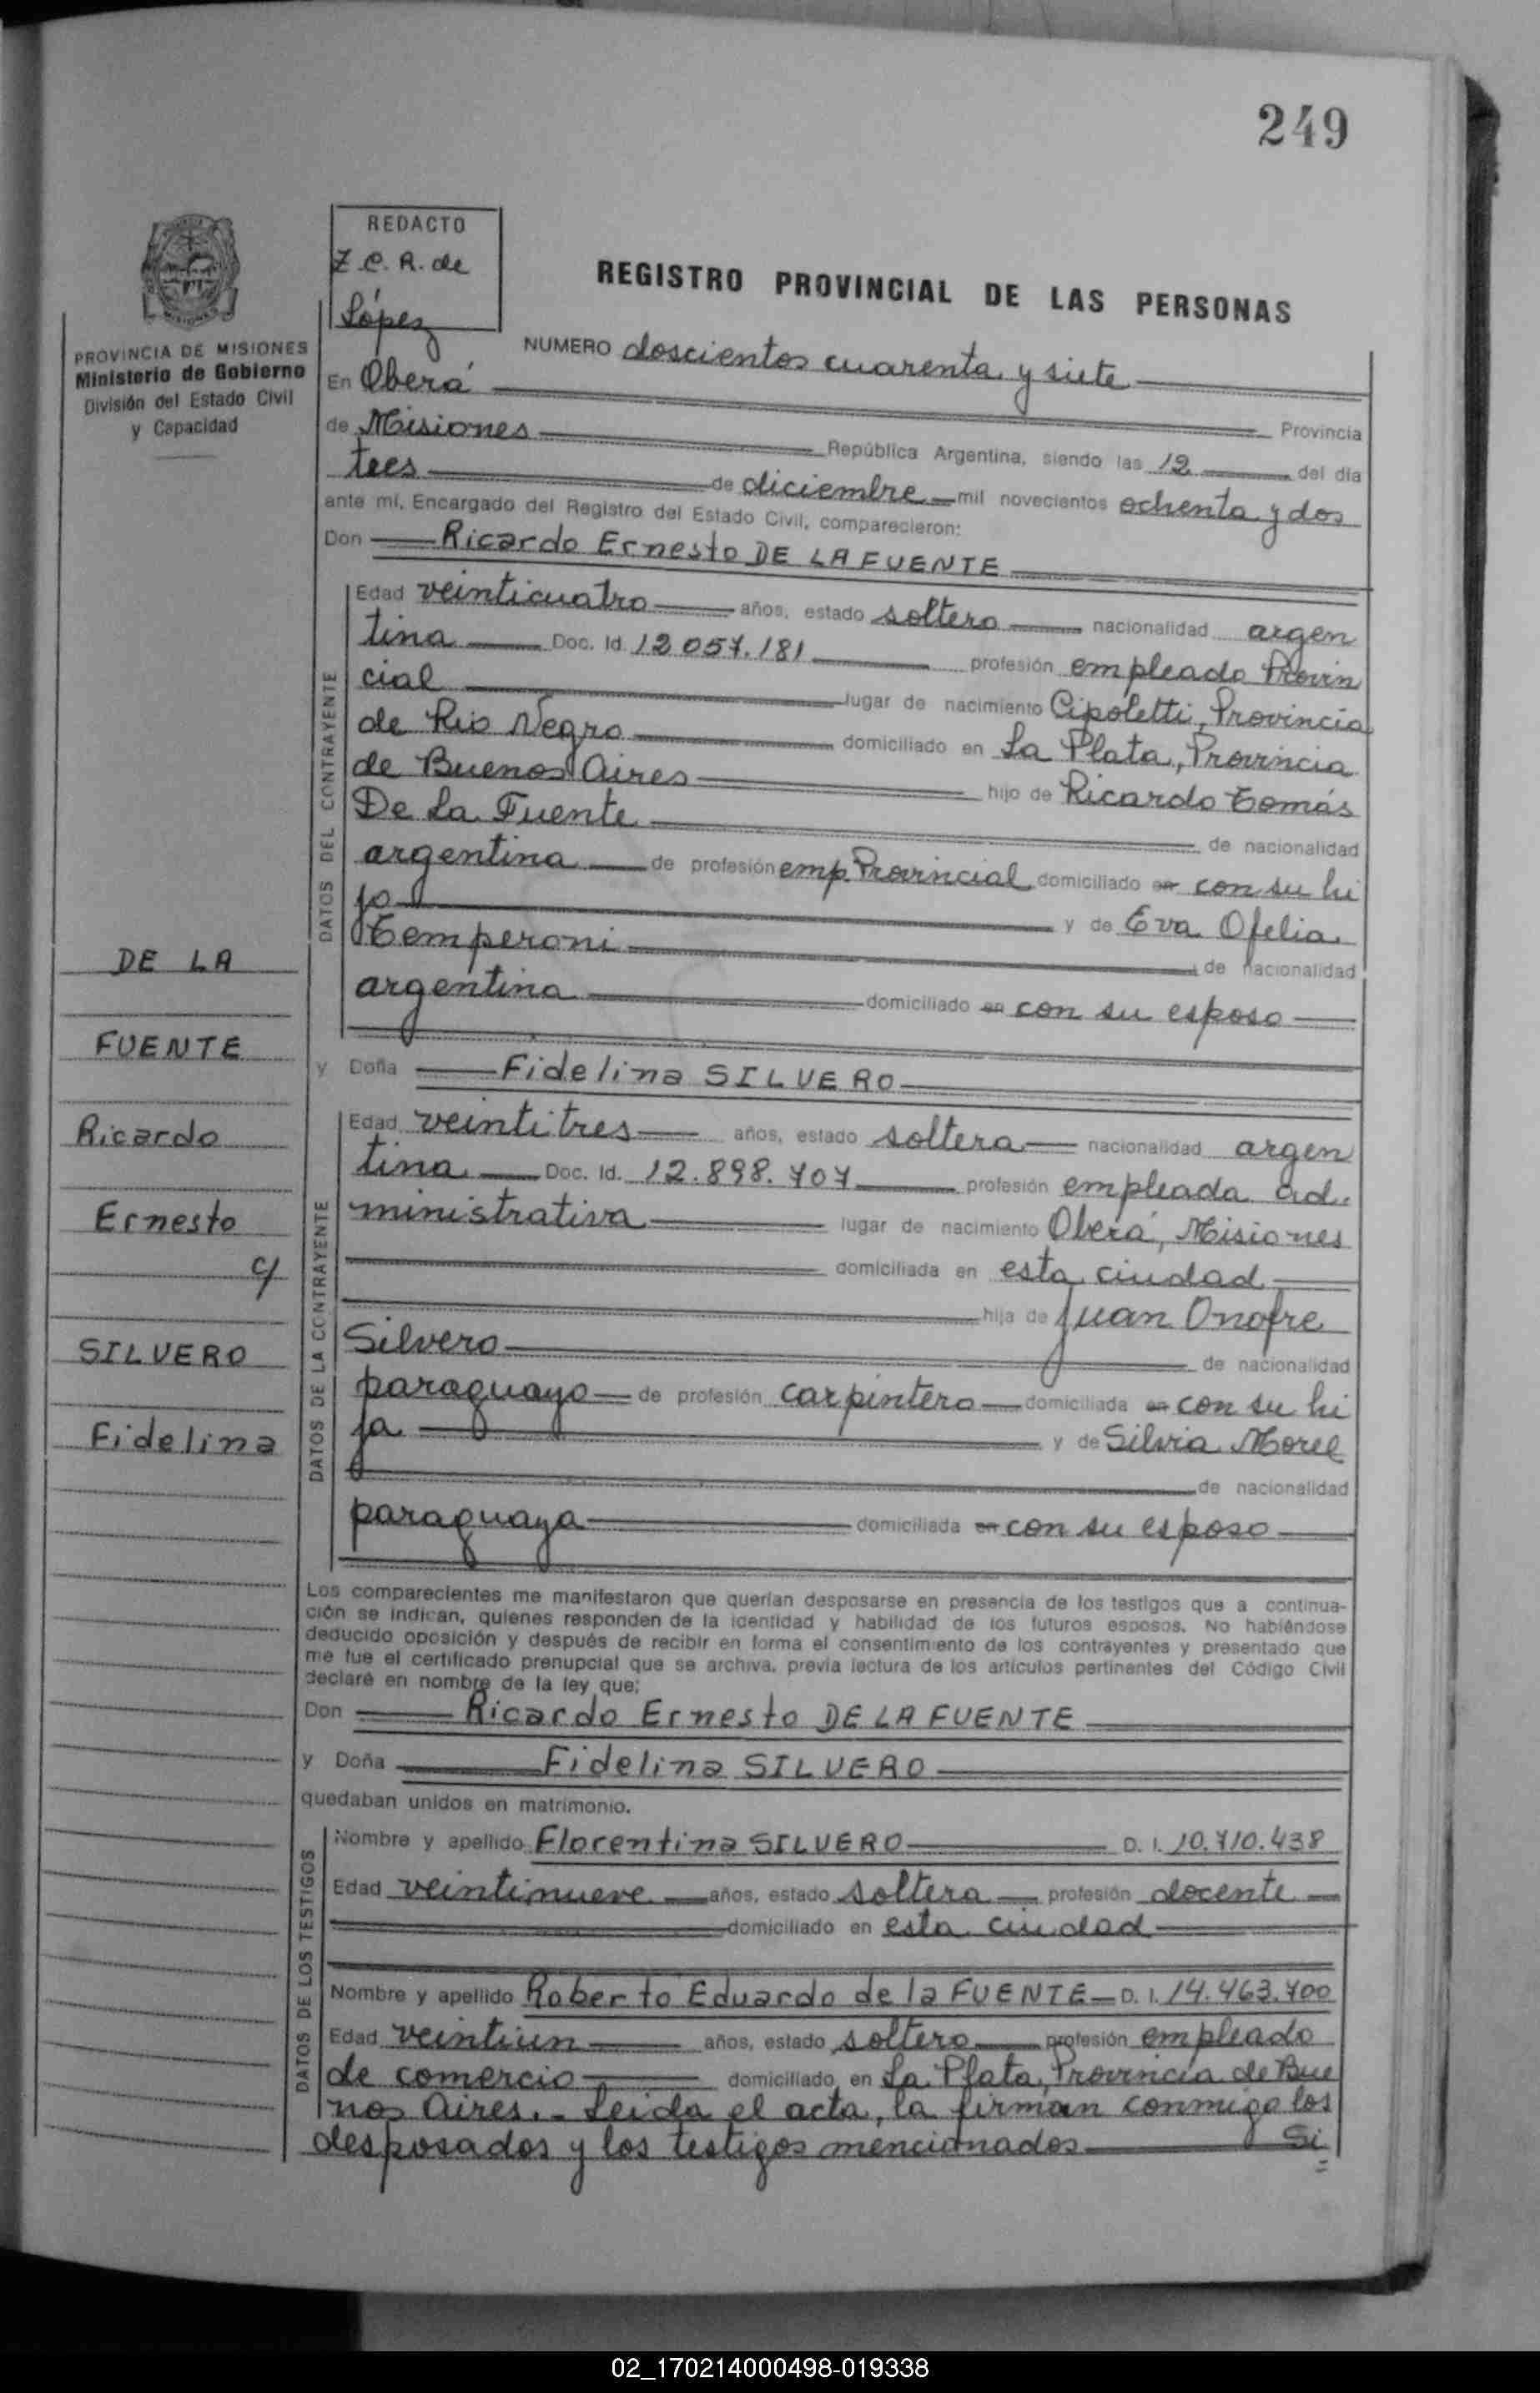 249
REDACTO
Z.C.R. de
López
REGISTRO PROVINCIAL DE LAS PERSONAS
PROVINCIA DE MISIONES
Ministerio de Gobierno
División del Estado Civil
y Capacidad
NUMERO doscientos cuarenta y siete
En Oberá Provincia
de Misiones República Argentina, siendo las 12 del día
tres de diciembre mil novecientos ochenta y dos
ante mí, Encargado del Registro del Estado Civil, comparecieron:
Don Ricardo Ernesto DE LA FUENTE
DATOS DEL CONTRAYENTE
Edad veinticuatro años, estado soltero nacionalidad argen
tina Doc. Id. 12.057.181 profesión empleado Provin
cial lugar de nacimiento Cipoletti, Provincia
de Rio Negro domiciliado en La Plata, Provincia
de Buenos Aires hijo de Ricardo Tomás
De La Fuente de nacionalidad
argentina de profesión emp. Provincial domiciliado en con su hi
jo y de Eva Ofelia
Temperoni de nacionalidad
argentina domiciliado en con su esposo
y Doña Fidelina SILVERO
DATOS DE LA CONTRAYENTE
Edad veintitres años, estado soltera nacionalidad argen
tina Doc. Id. 12.898.707 profesión empleada ad-
ministrativa lugar de nacimiento Oberá, Misiones
domiciliada en esta ciudad
hija de Juan Onofre
Silvero de nacionalidad
paraguayo de profesión carpintero domiciliada en con su hi
ja y de Silvia Morel
de nacionalidad
paraguaya domiciliada en con su esposo
DE LA
FUENTE
Ricardo
Ernesto
c/
SILVERO
Fidelina
Los comparecientes me manifestaron que querían desposarse en presencia de los testigos que a continua-
ción se indican, quienes responden de la identidad y habilidad de los futuros esposos. No habiéndose
deducido oposición y después de recibir en forma el consentimiento de los contrayentes y presentado que
me fue el certificado prenupcial que se archiva, previa lectura de los artículos pertinentes del Código Civil
declaré en nombre de la ley que:
Don Ricardo Ernesto DE LA FUENTE
y Doña Fidelina SILVERO
quedaban unidos en matrimonio.
DATOS DE LOS TESTIGOS
Nombre y apellido Florentina SILVERO D. I. 10.710.438
Edad veintinueve años, estado soltera profesión docente
domiciliado en esta ciudad
Nombre y apellido Roberto Eduardo de la FUENTE D. I. 14.463.700
Edad veintiun años, estado soltero profesión empleado
de comercio domiciliado en La Plata, Provincia de Bue
nos Aires.- Leida el acta, la firman conmigo los
desposados y los testigos mencionados Si
02_170214000498-019338